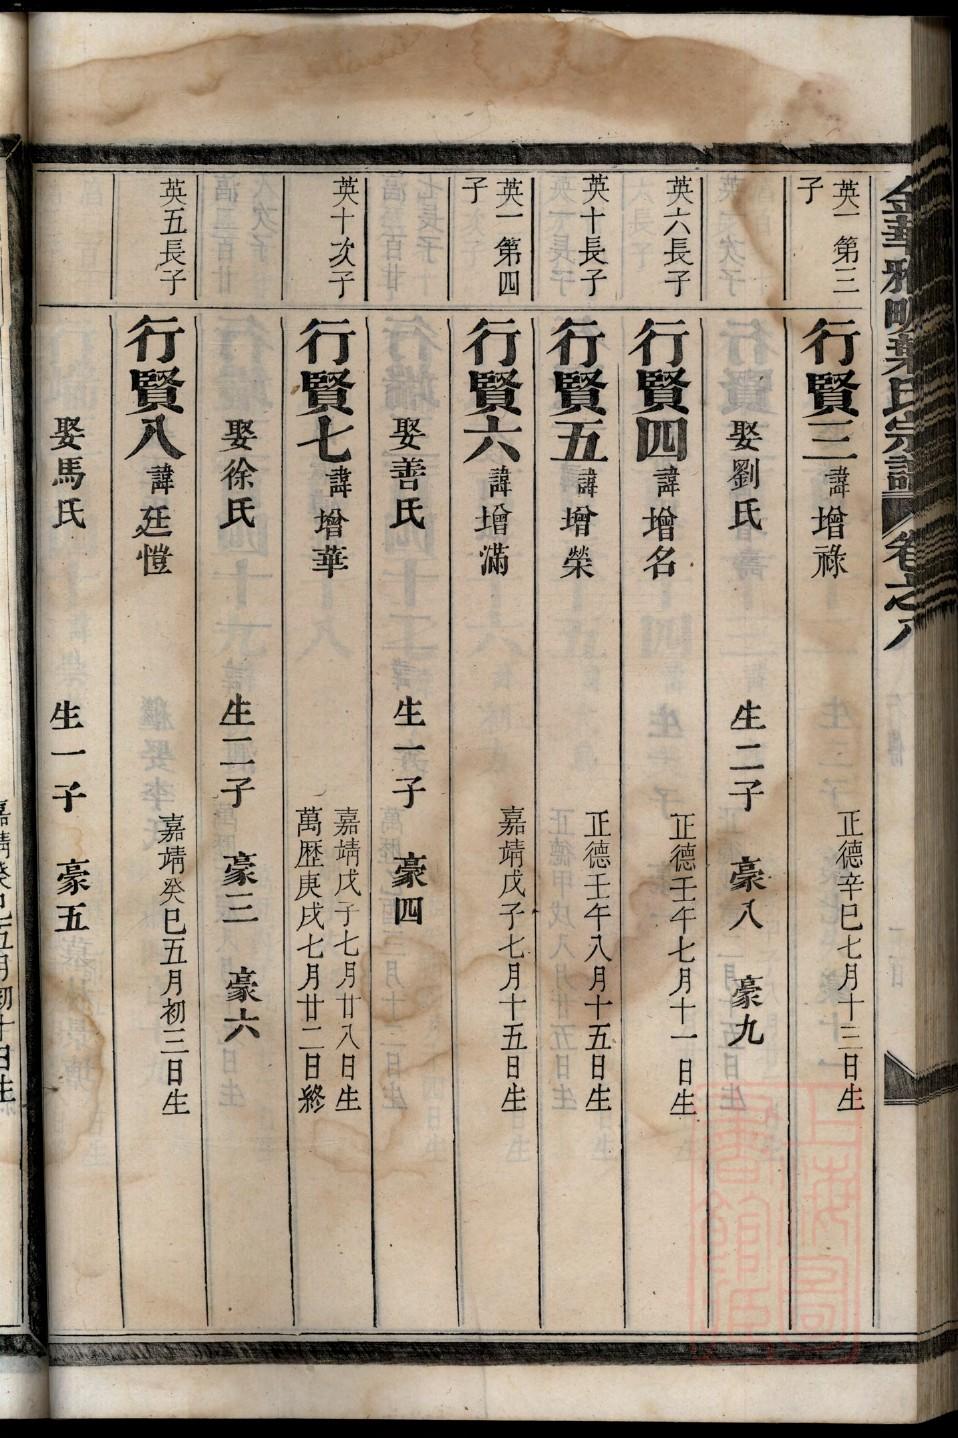 金華雅畈葉氏宗譜 卷之八
英一第三
子
行賢三 諱增祿
正德辛巳七月十三日生
娶劉氏 生二子 豪八 豪九
英六長子
行賢四 諱增名
正德壬午七月十一日生
英十長子
行賢五 諱增榮
正德壬午八月十五日生
英一第四
子
行賢六 諱增滿
嘉靖戊子七月十五日生
娶善氏 生一子 豪四
英十次子
行賢七 諱增華
嘉靖戊子七月廿八日生
萬歷庚戌七月廿二日終
娶徐氏 生二子 豪三 豪六
英五長子
行賢八 諱廷愷
嘉靖癸巳五月初三日生
娶馬氏 生一子 豪五